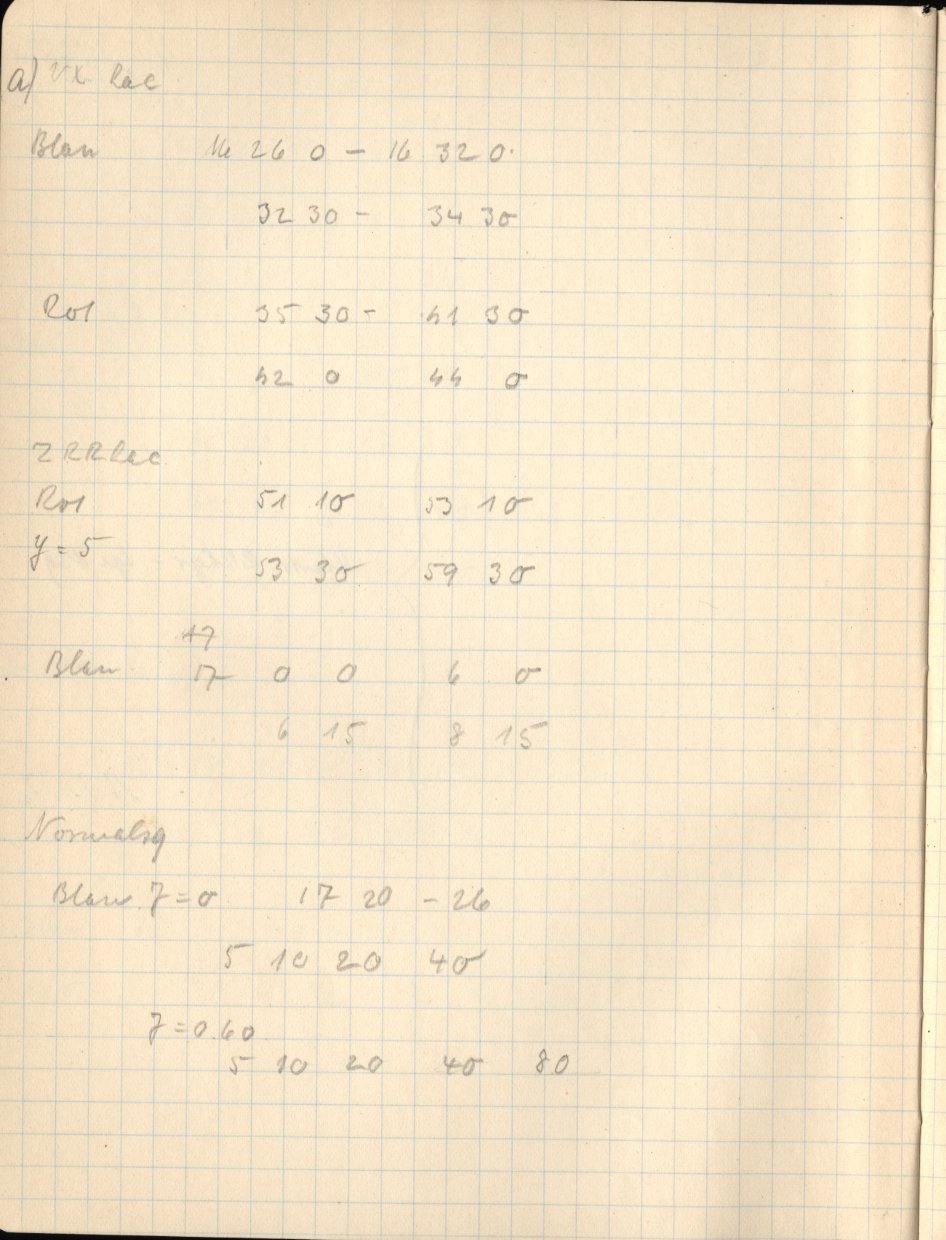 a) VX Lac
Blau 16 26 0 — 16 32 0
32 30 — 34 30
Rot 35 30 — 41 30
42 0 44 0
Z RR Lac
Rot 51 10 53 10
y = 5 53 30 59 30
47
Blau 17 0 0 6 0
6 15 8 15
Normalsq
Blau 7 = 0 17 20 — 26
5 10 20 40
7 = 0.60
5 10 20 40 80